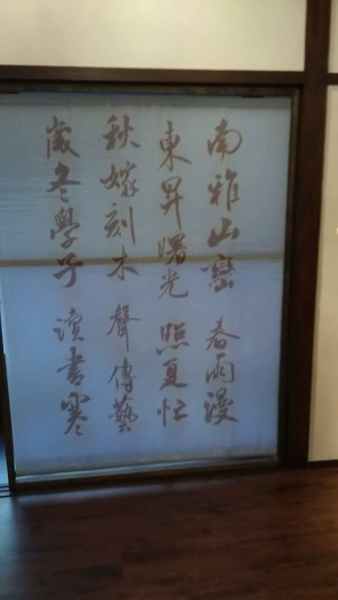 南雅山巒 春雨漫
東昇曙光 照夏忙
秋嫁刻木 聲傳藝
歲冬學子 讀書寒